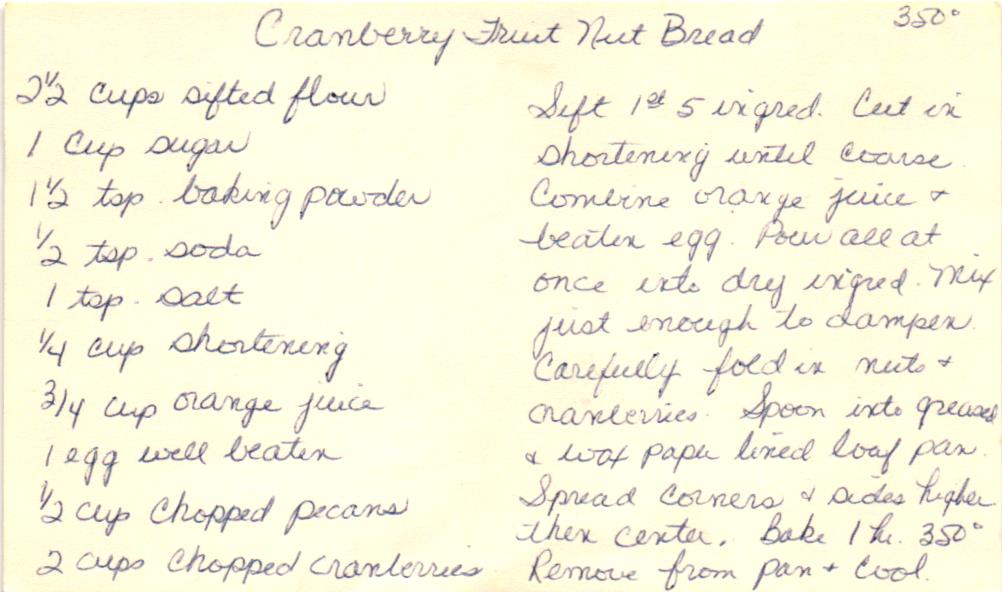 Cranberry Fruit Nut Bread
350°
2 1/2 cups sifted flour
1 cup sugar
1 1/2 tsp. baking powder
1/2 tsp. soda
1 tsp. salt
1/4 cup shortening
3/4 cup orange juice
1 egg well beaten
1/2 cup chopped pecans
2 cups chopped cranberries
Sift 1st 5 ingred. Cut in
shortening until coarse.
Combine orange juice +
beaten egg. Pour all at
once into dry ingred. Mix
just enough to dampen.
Carefully fold in nuts +
cranberries. Spoon into greased
+ wax paper lined loaf pan.
Spread corners + sides higher
then center. Bake 1 hr. 350°
Remove from pan + cool.